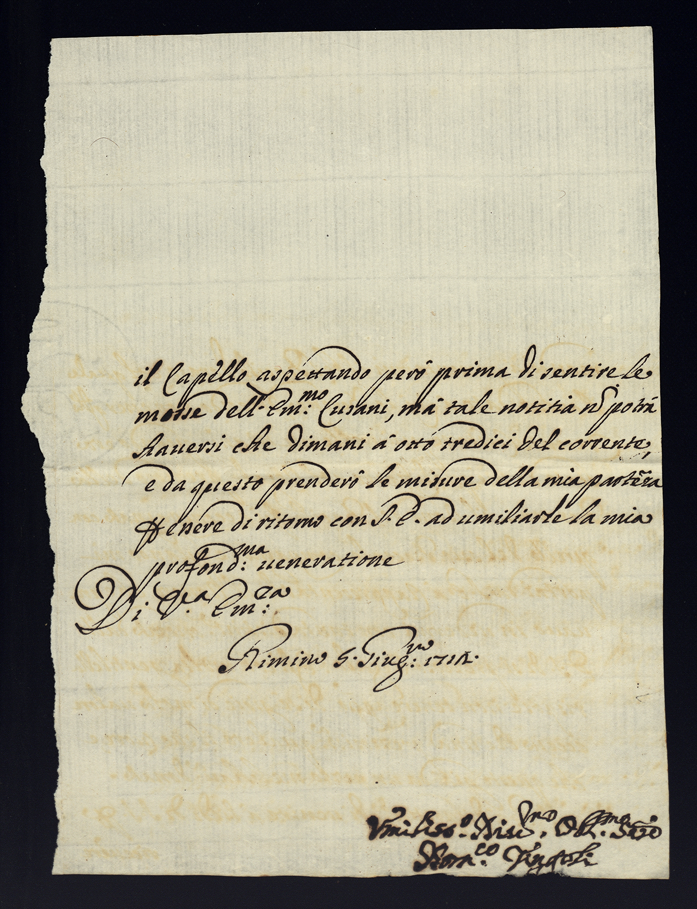 il Capello aspettando però prima di sentire le
mosse dell'Em:mo Cusani, mà tale notitia nõ potrà
hauersi che dimani à otto tredici del corrente,
e da questo prenderò le misure della mia partẽza
essere di ritorno con V. E. ad umiliarle la mia
profond:ma ueneratione
Di V.ra Em:za
Rimino 5. Giug:no 171
Umiliss:o Obl:mo